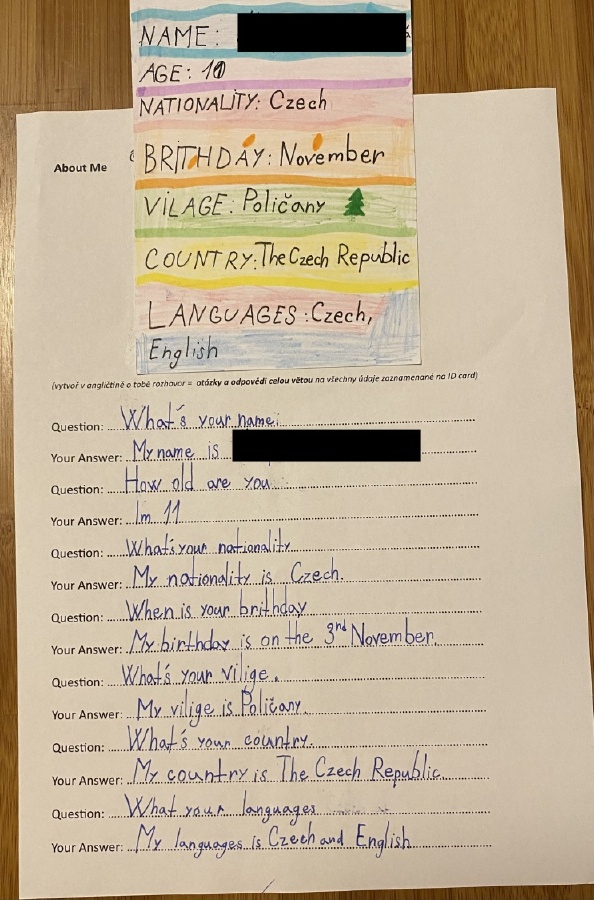 NAME:
AGE: 10
NATIONALITY: Czech
BRITHDAY: November
VILAGE: Poličany
COUNTRY: The Czech Republic
LANGUAGES: Czech,
English
About Me
(vytvoř v angličtině o tobě rozhovor = otázky a odpovědi celou větou na všechny údaje zaznamenané na ID card)
Question: What's your name.
Your Answer: My name is
Question: How old are you
Your Answer: Im 11
Question: What's your nationality
Your Answer: My nationality is Czech.
Question: When is your brithday
Your Answer: My birthday is on the 3rd November.
Question: What's your vilige.
Your Answer: My vilige is Poličany.
Question: What's your country.
Your Answer: My country is The Czech Republic
Question: What your languages
Your Answer: My languages is Czech and English